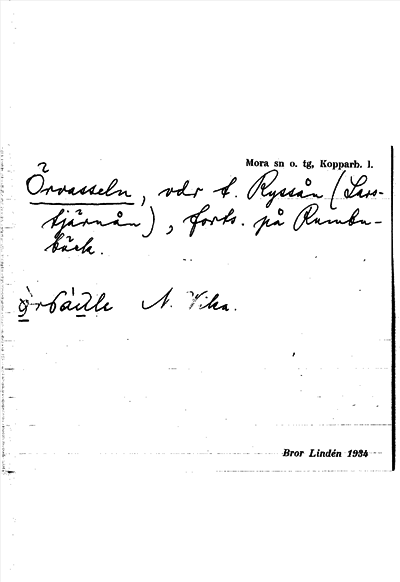 Mora sn o. tg, Kopparb. l.
Örvasseln, vdr t. Ryssån (Lars-
tjärnån), forts. på Rumbu-
bäck.
N. Vika.
Bror Lindén 1934